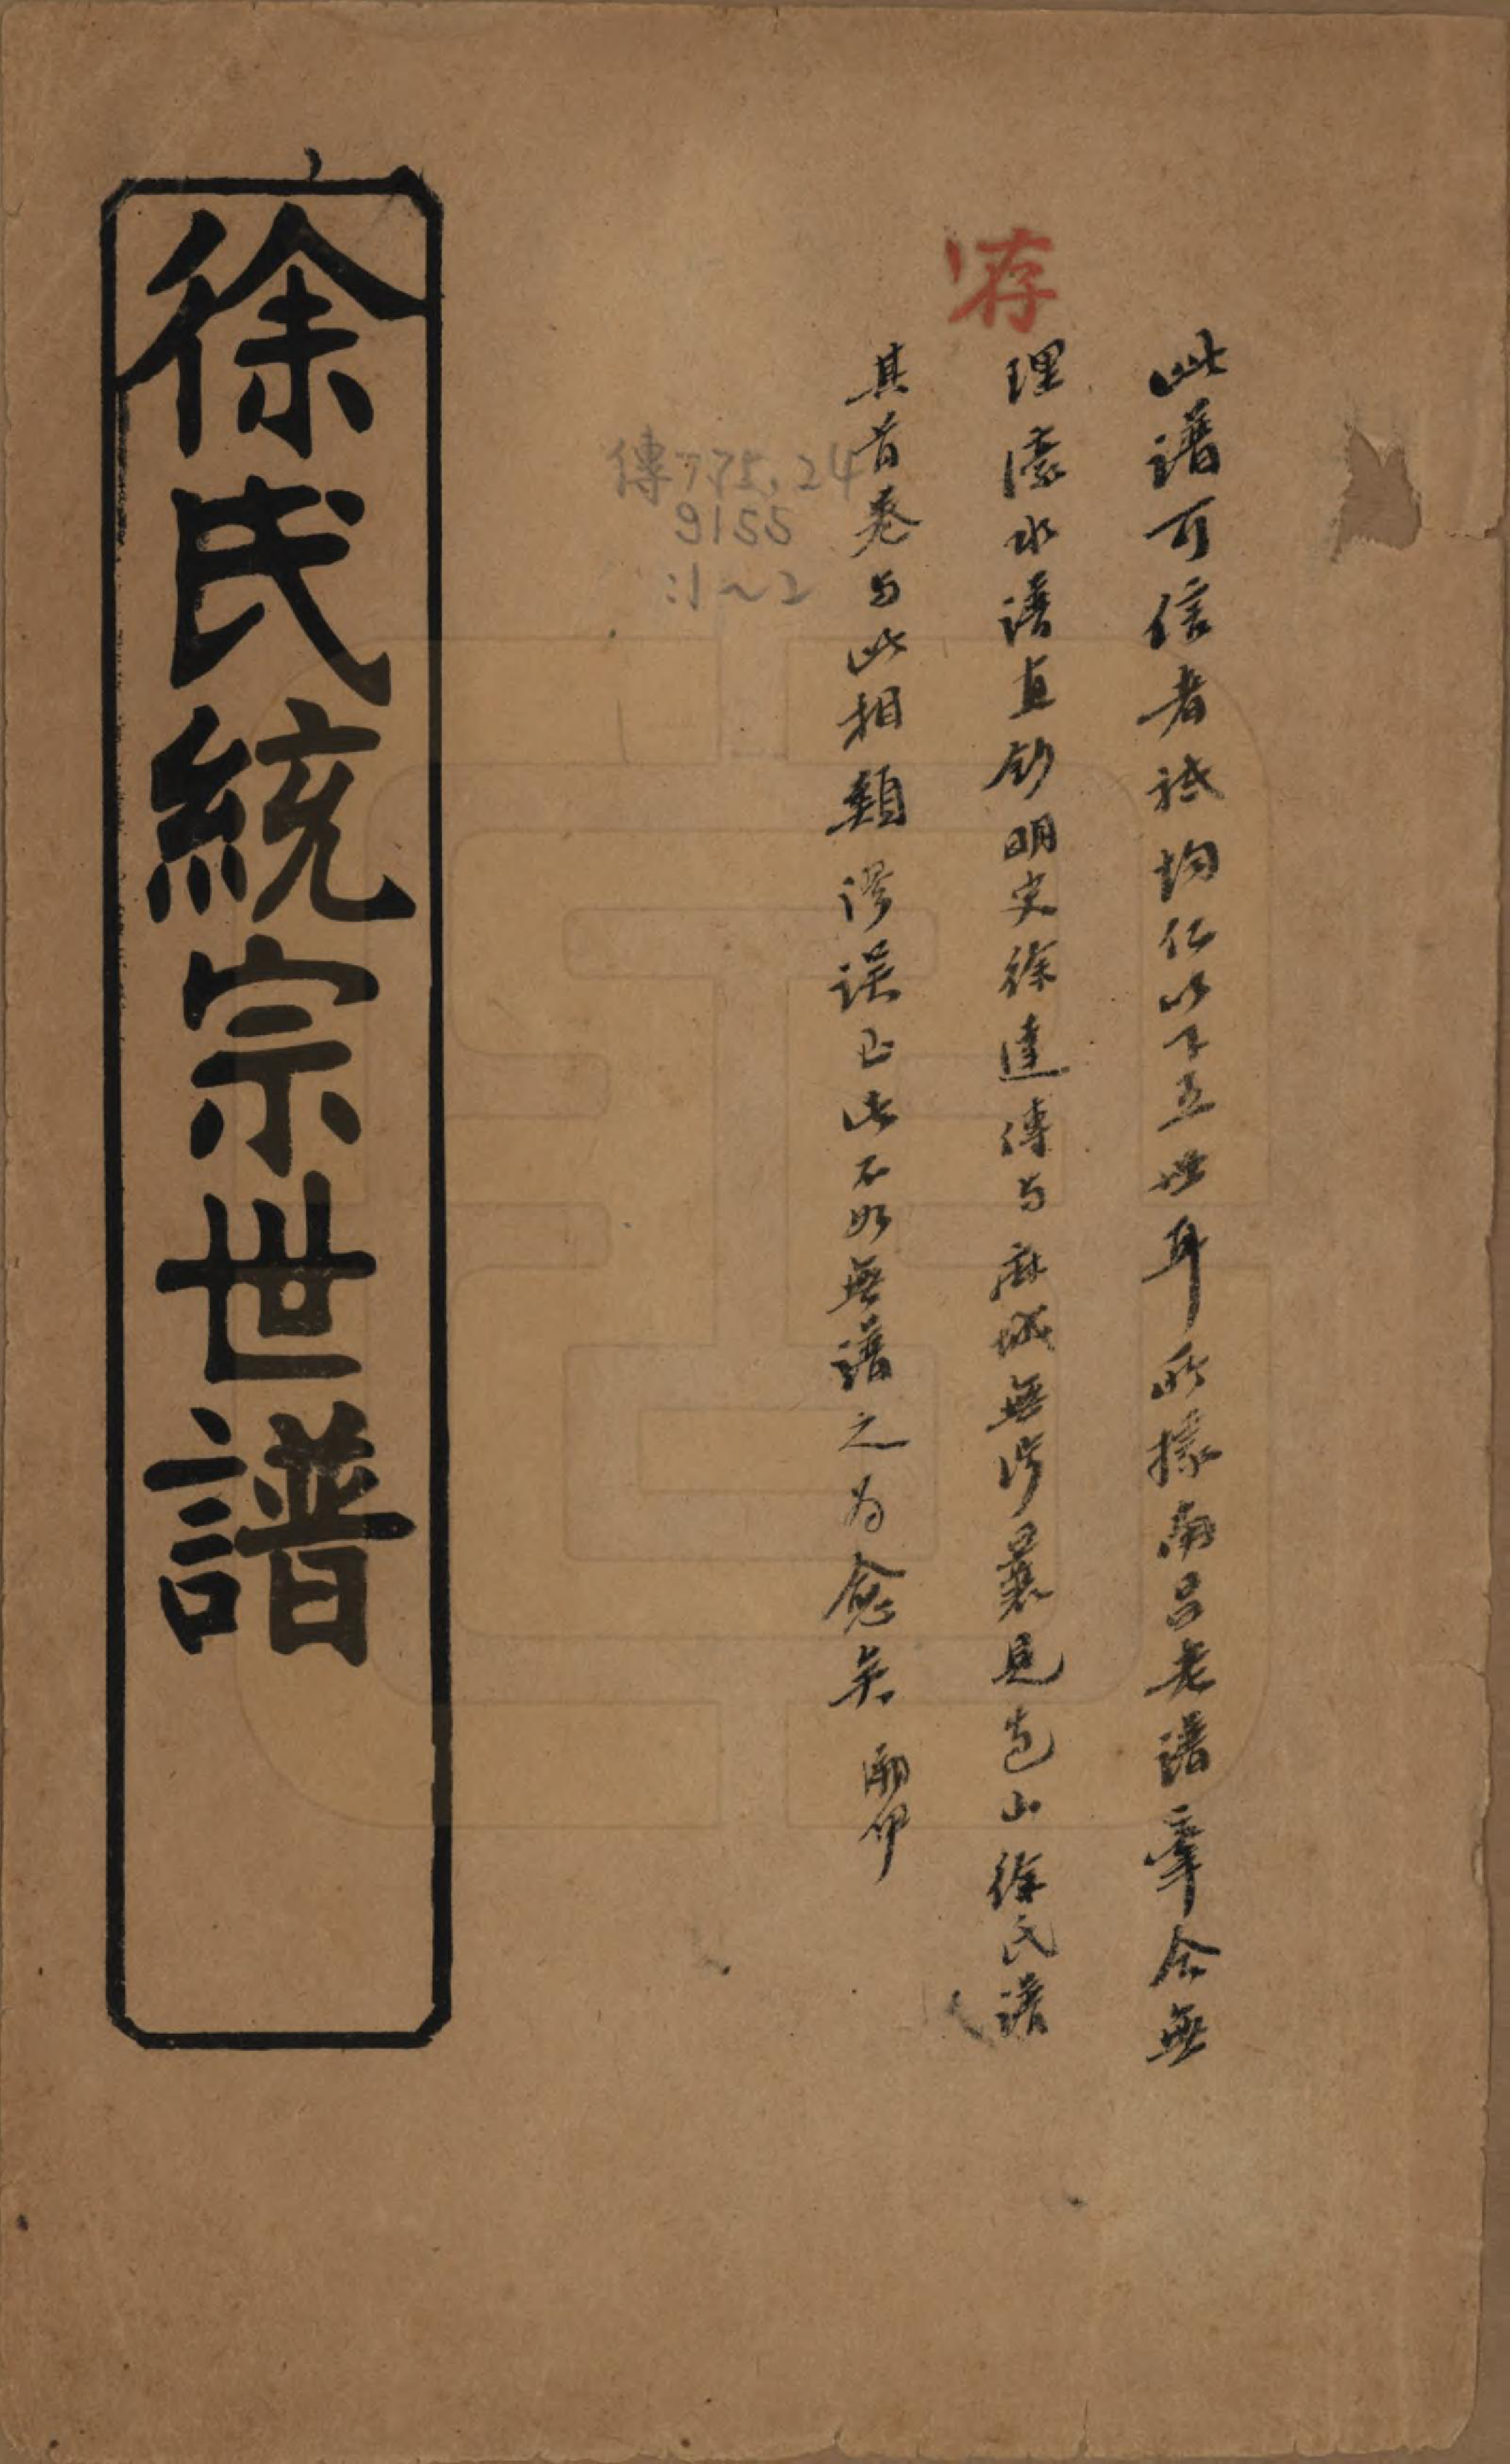 此譜可信者祗均仁以下五世耳所據南呂老譜牽合無
理濠水譜直鈔明史徐達傳与麻城無涉曩見包山徐氏譜
其首卷与此相類謬誤如此不如無譜之为愈矣
存
傳775.24
9155
:1~2
徐氏統宗世譜